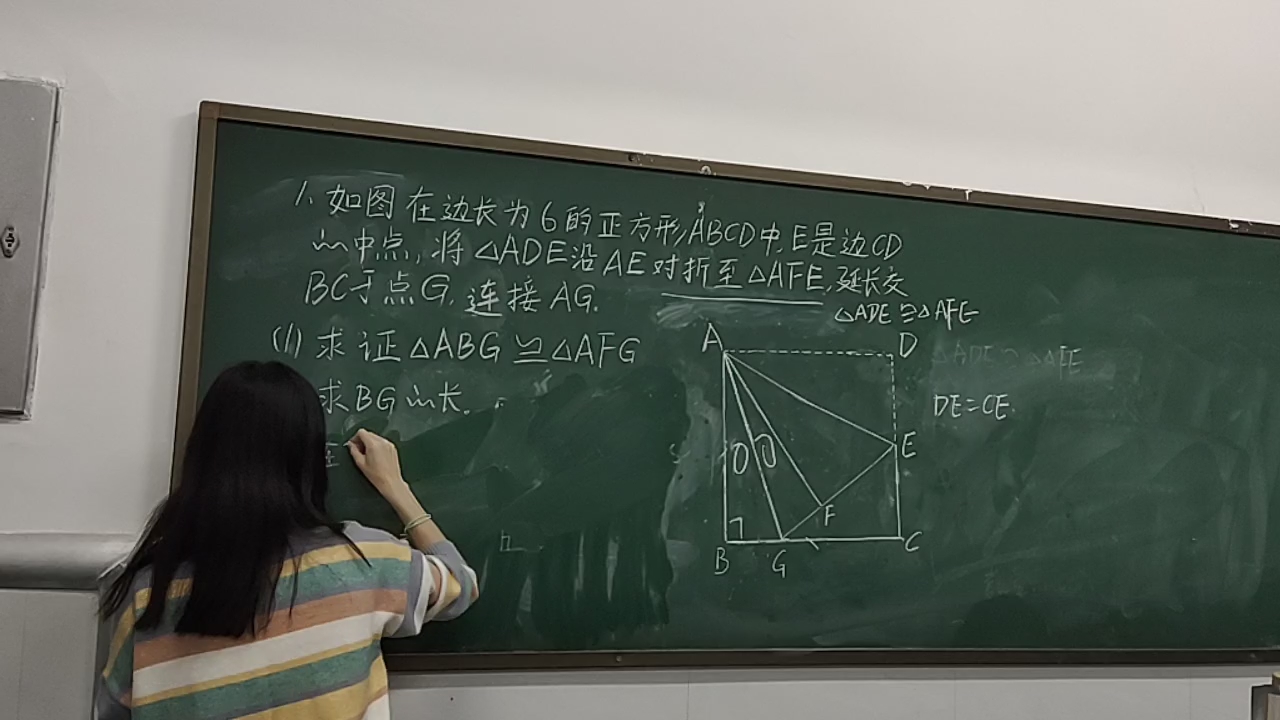 1. 如图在边长为6的正方形ABCD中,E是边CD
的中点,将△ADE沿AE对折至△AFE,延长交
BC于点G,连接AG.
(1) 求证△ABG≌△AFG
求BG的长.
△ADE≌△AFE
A
D
△ADE≌△AFE
DE=CE.
E
F
B
G
C